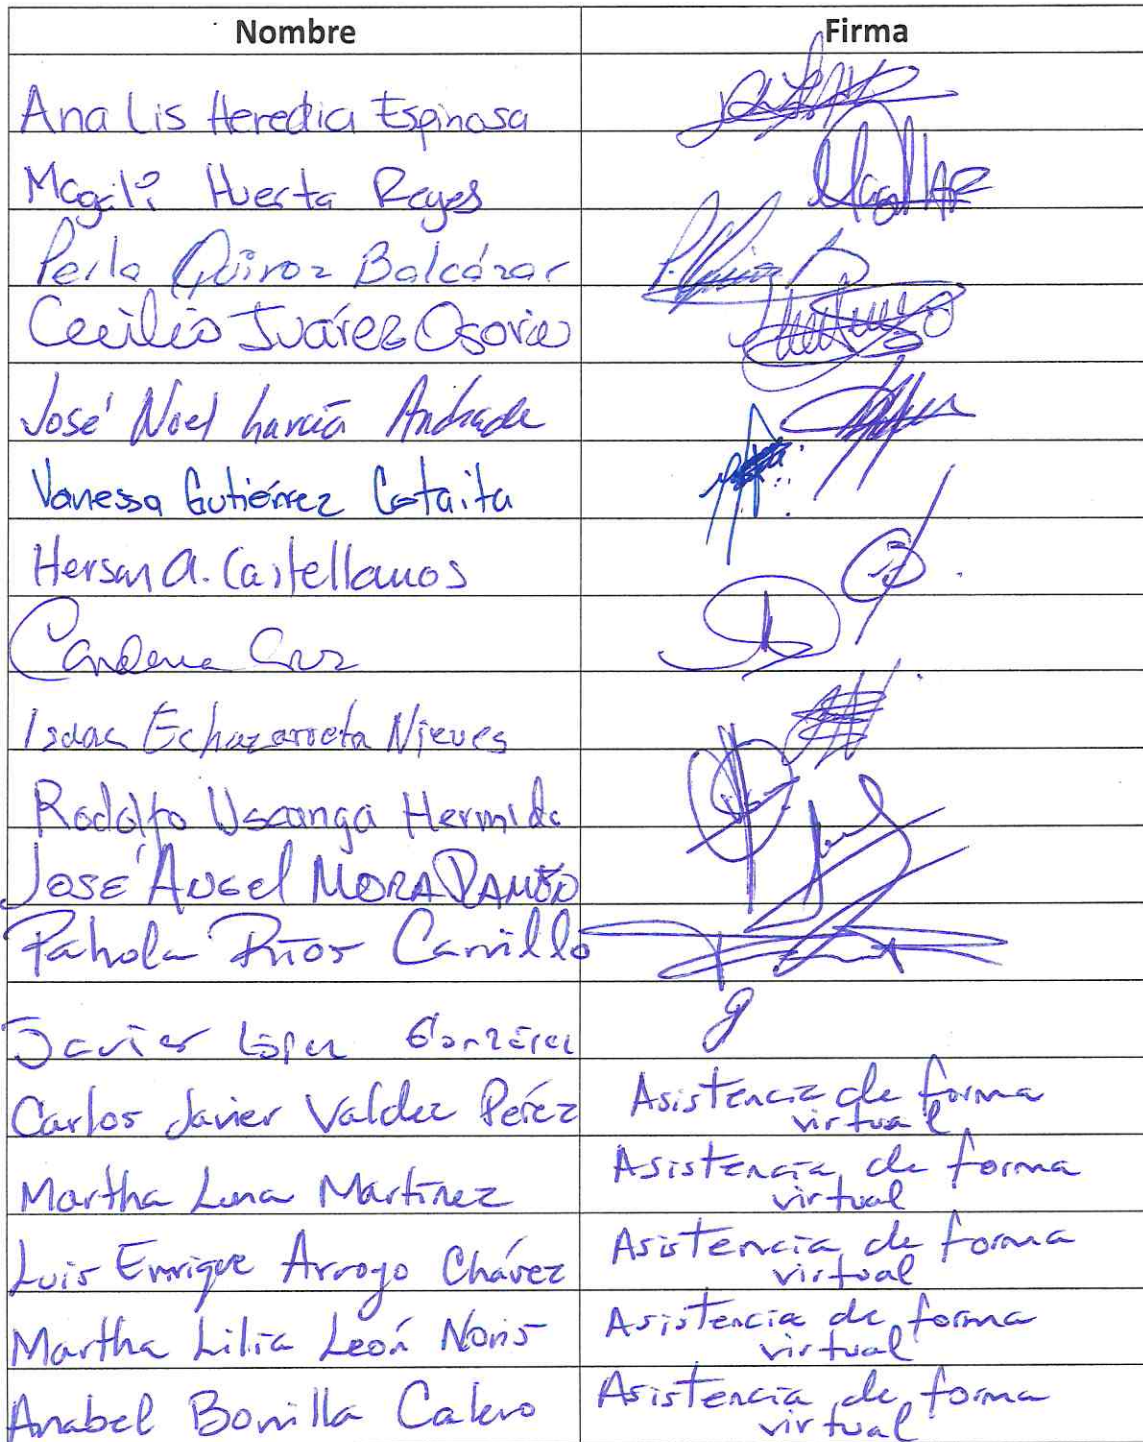 Nombre Firma
Ana Lis Heredia Espinosa
Magali Huerta Reyes
Perla Quiroz Balcázar
Cecilio Juárez Osorio
José Noel García Andrade
Vanessa Gutiérrez
Hersan A. Castellanos
Cruz
Isaac Echazarreta Nieves
Rodolfo Uscanga Hermida
JOSÉ ÁNGEL MORA RAMÓN
Pahola Ríos Carrillo
Javier López González
Carlos Javier Valdez Pérez Asistencia de forma
virtual
Martha Luna Martínez Asistencia de forma
virtual
Luis Enrique Arroyo Chávez Asistencia de forma
virtual
Martha Lilia León Noris Asistencia de forma
virtual
Anabel Bonilla Calero Asistencia de forma
virtual